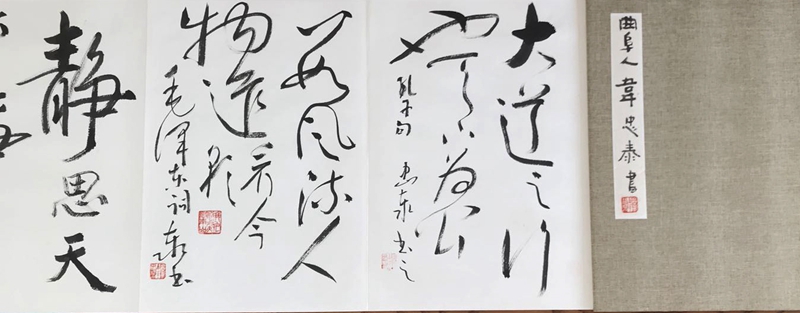 曲阜人韋忠泰書
大道之行
也天下为公
孔子句 忠泰书之
数风流人
物还看今朝
毛泽东词 泰书
静思天